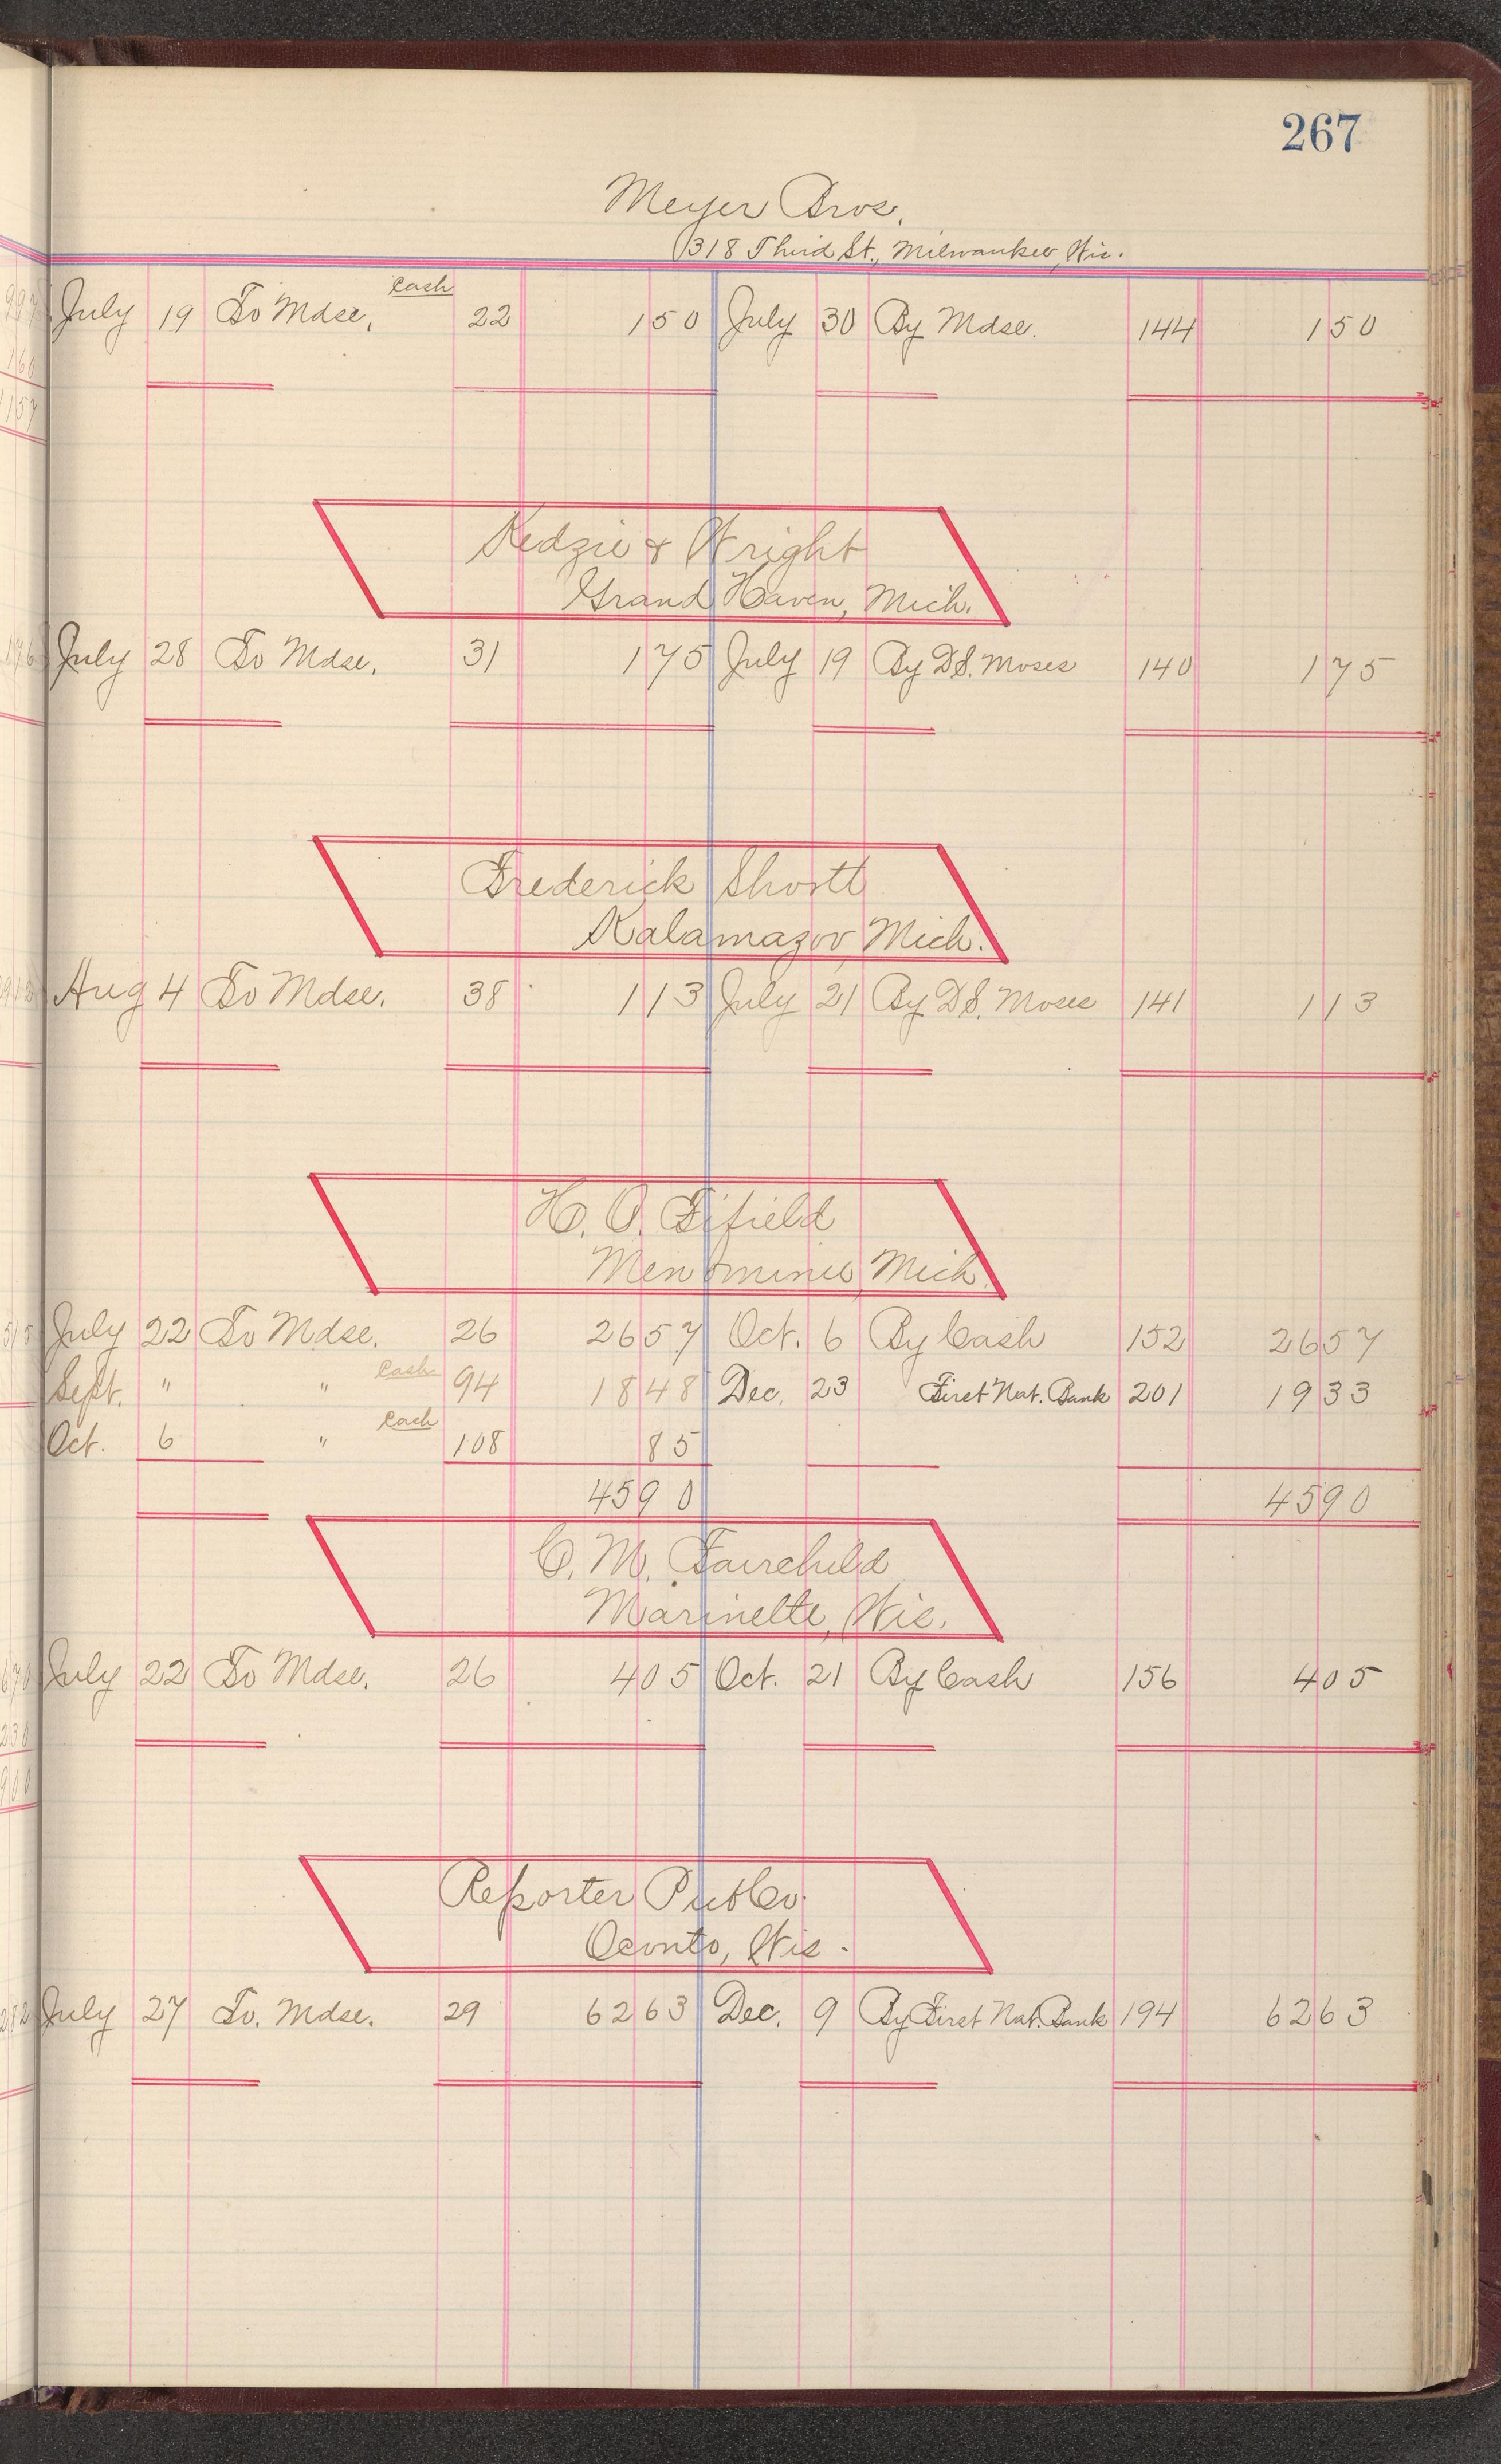 267
Meyer Bros.
318 Third St., Milwaukee, Wis.
July 19 To Mdse, Cash 22 1 50 July 30 By Mdse. 144 1 50
Kedzie & Wright
Grand Haven, Mich.
July 28 To Mdse. 31 1 75 July 19 By D.S. Moses 140 1 75
Frederick Shostt
Kalamazoo, Mich.
Aug 4 To Mdse. 38 1 13 July 21 By D.S. Moses 141 1 13
H. O. Fifield
Menominee, Mich.
July 22 To Mdse. 26 26 57 Oct. 6 By Cash 152 26 57
Sept. " " Cash 94 18 48 Dec. 23 First Nat. Bank 201 19 33
Oct. 6 " Cash 108 85
45 90 45 90
C. M. Fairchild
Marinette, Wis.
July 22 To Mdse. 26 4 05 Oct. 21 By Cash 156 4 05
Reporter Pub Co.
Oconto, Wis.
July 27 To. Mdse. 29 62 63 Dec. 9 By First Nat. Bank 194 62 63